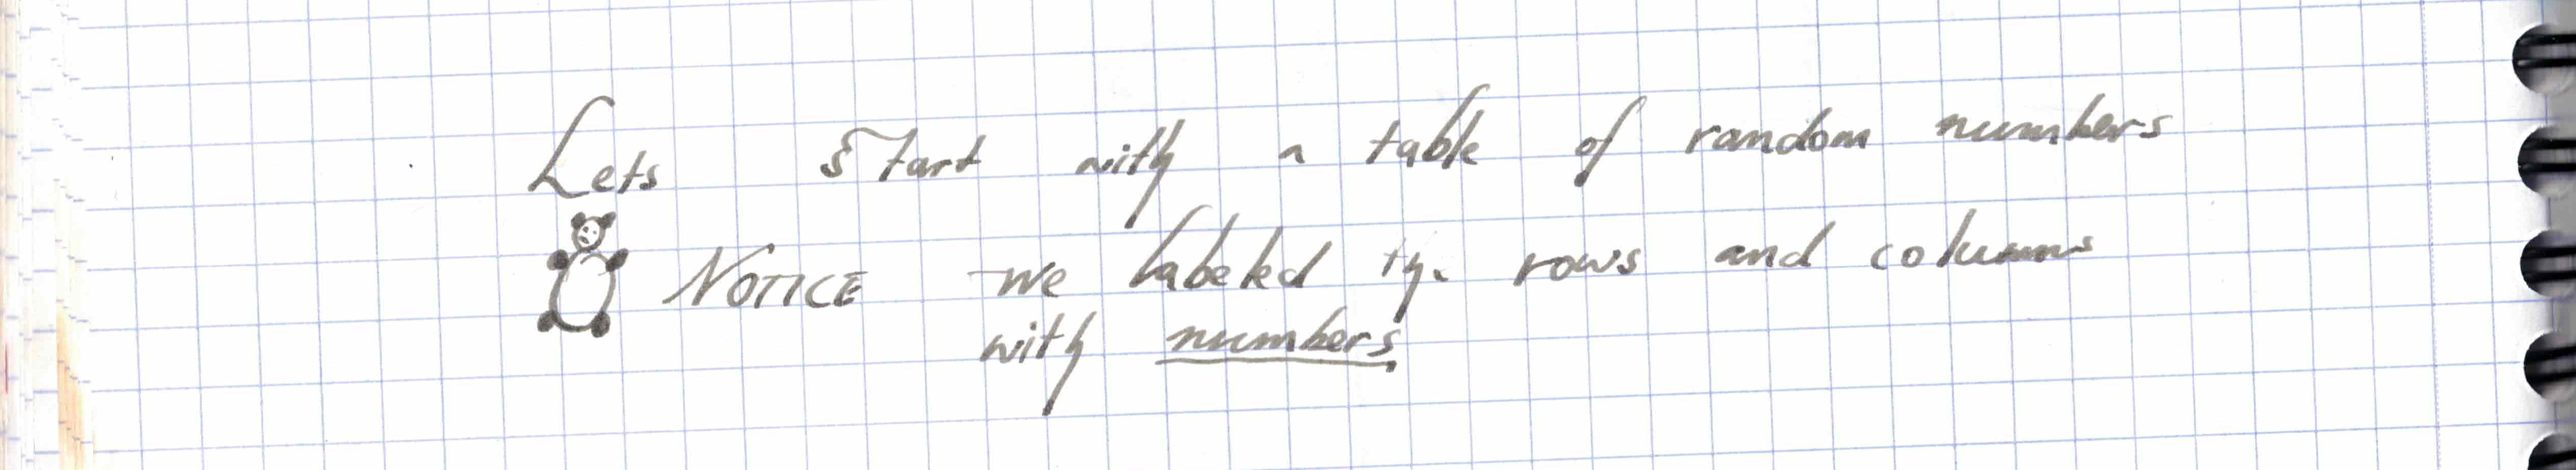 Lets start with a table of random numbers
NOTICE we labeled the rows and columns
with numbers